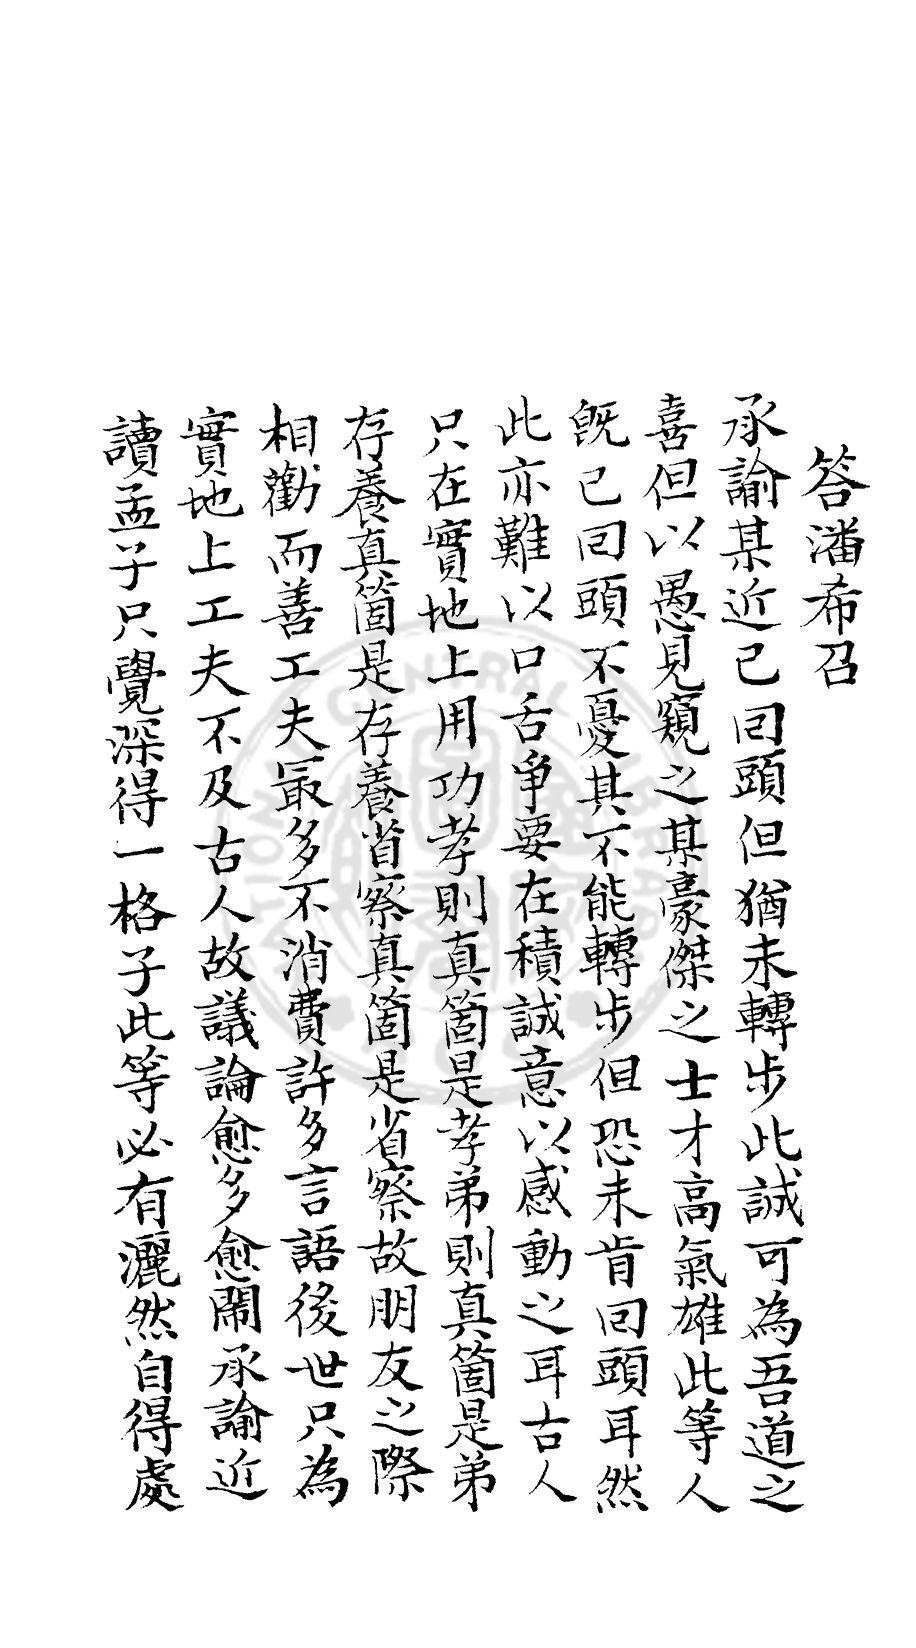 答潘希召
承諭某近已回頭但猶未轉步此誠可為吾道之
喜但以愚見窺之某豪傑之士才高氣雄此等人
既已回頭不憂其不能轉步但恐未肯回頭耳然
此亦難以口舌爭要在積誠意以感動之耳古人
只在實地上用功孝則真箇是孝弟則真箇是弟
存養真箇是存養省察真箇是省察故朋友之際
相勸而善工夫最多不消費許多言語後世只為
實地上工夫不及古人故議論愈多愈鬧承諭近
讀孟子只覺深得一格子此等必有灑然自得處
NATIONAL CENTRAL LIBRARY